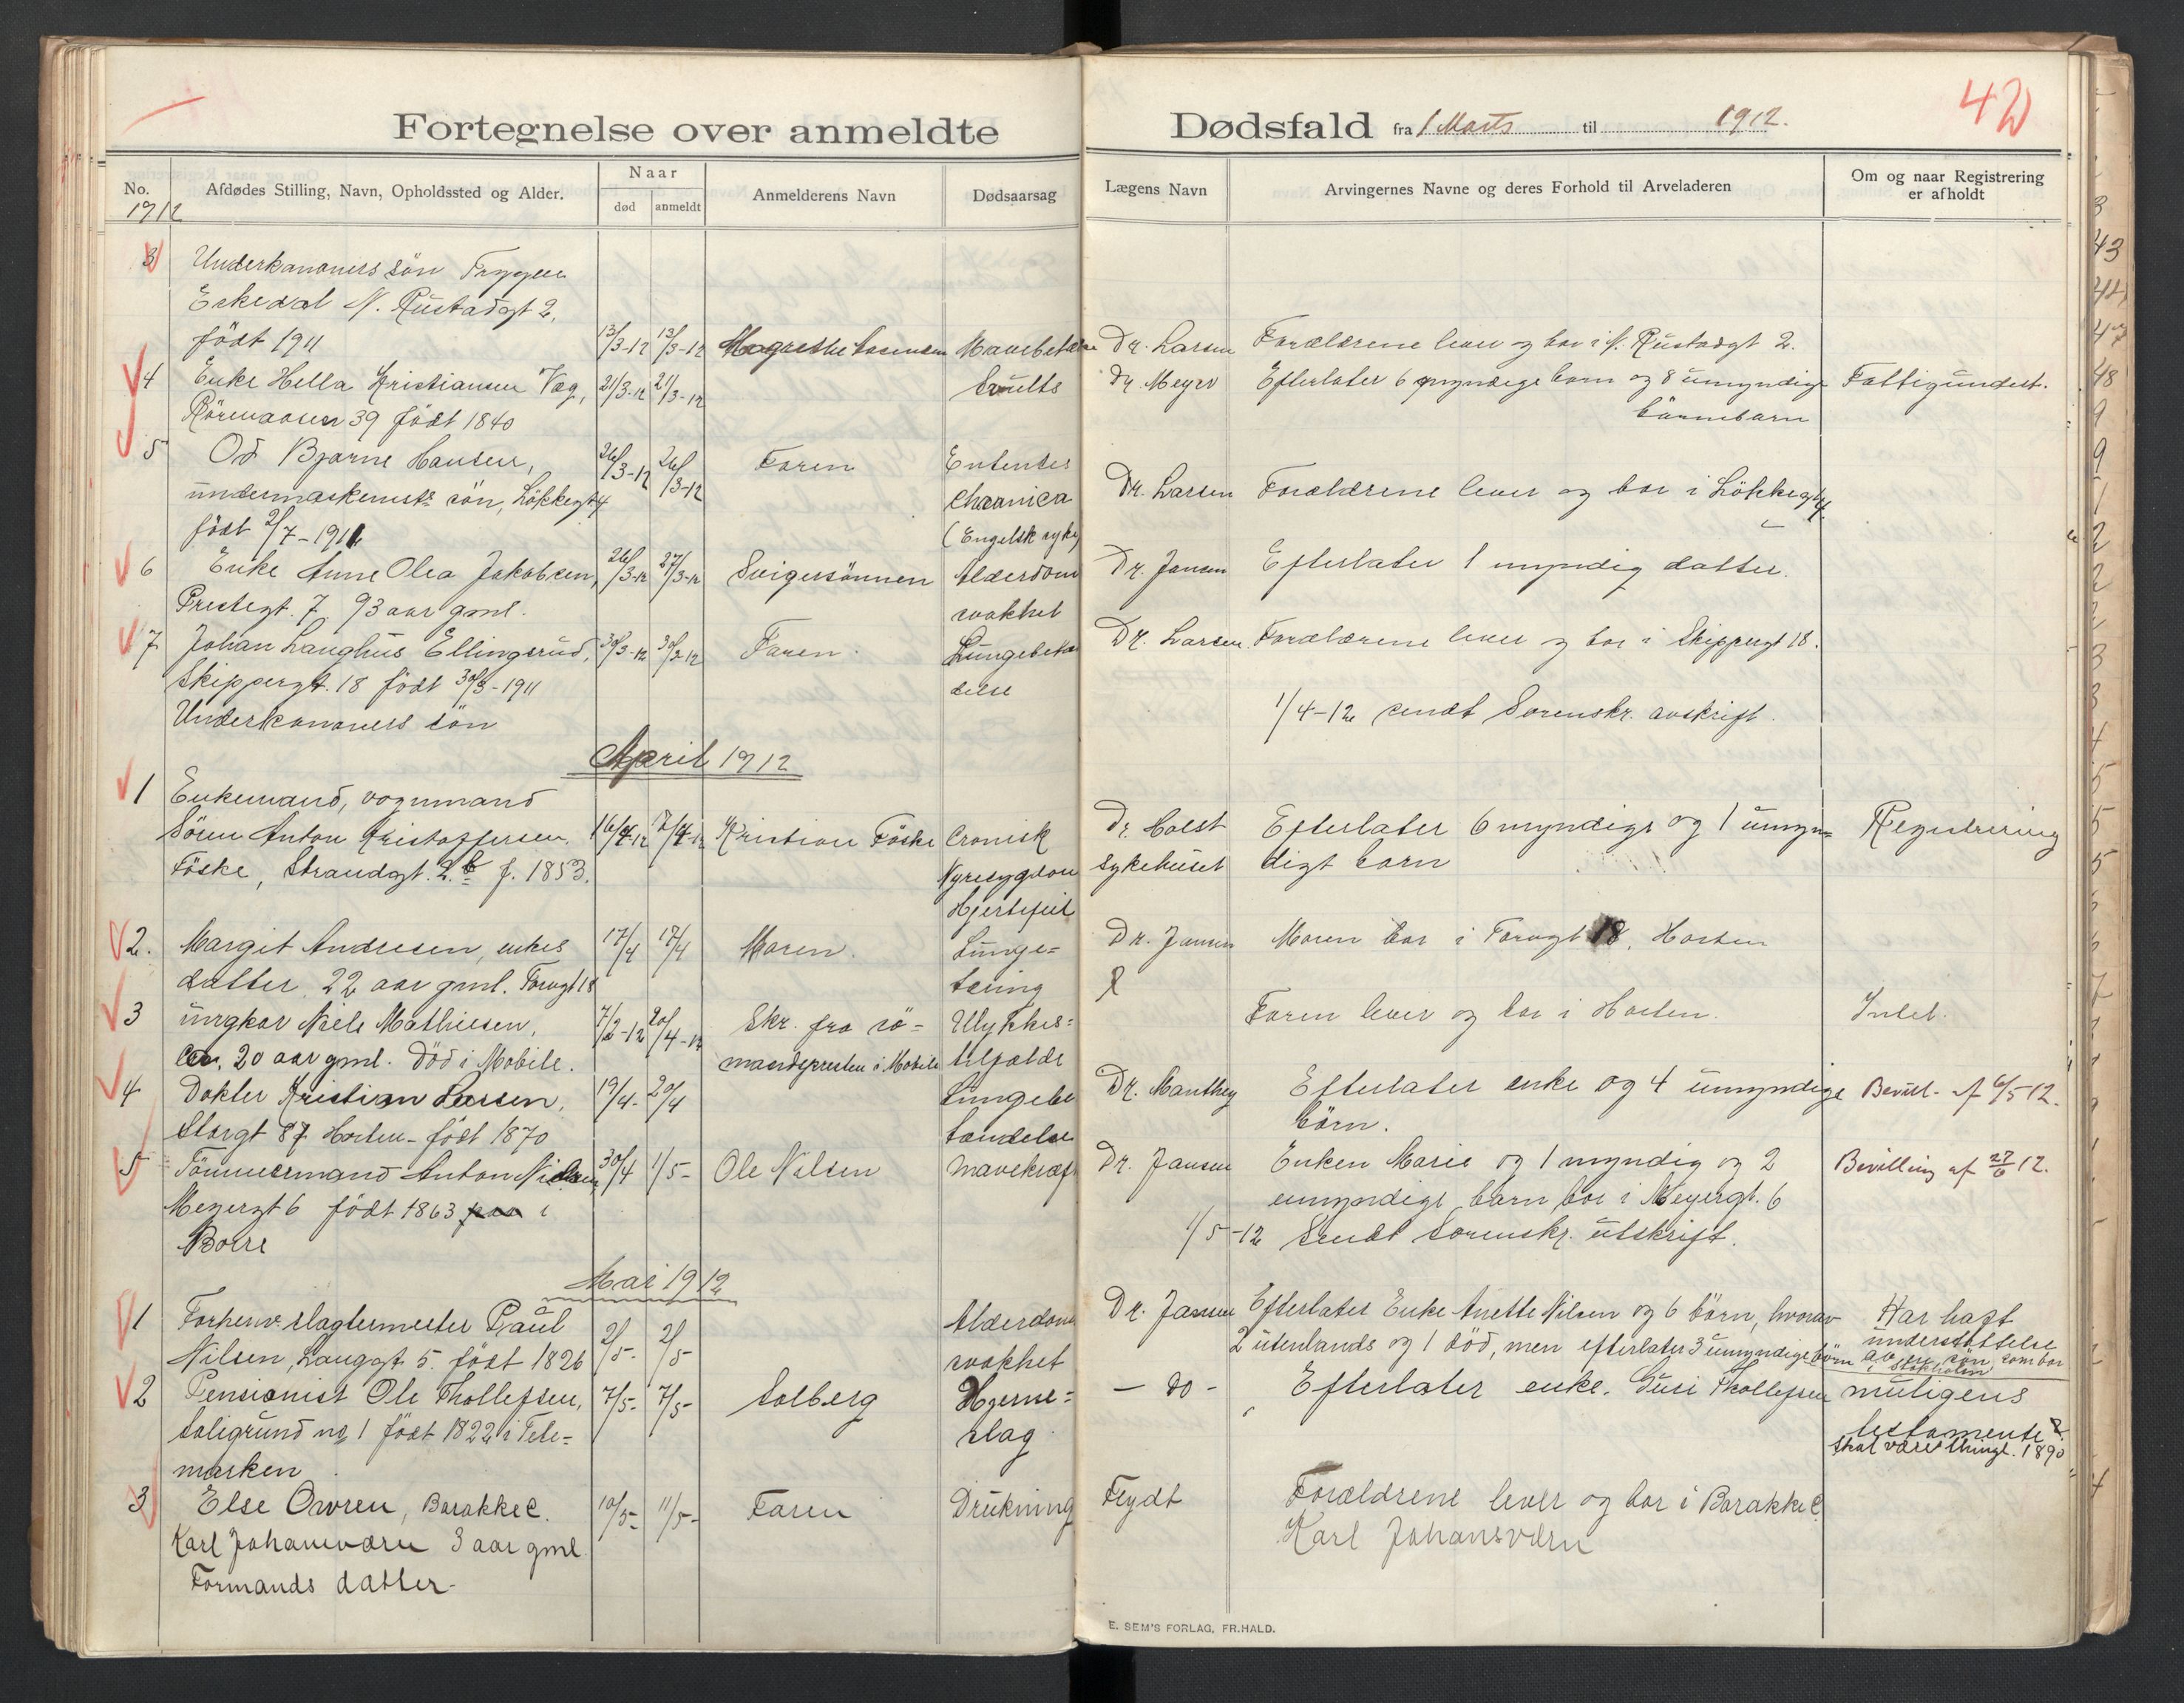 42
Fortegnelse over anmeldte
Dødsfald fra 1 Marts til 1912.
No.
1912
Afdødes Stilling, Navn, Opholdssted og Alder.
Naar
død
anmeldt
Anmelderens Navn
Dødsaarsag
Lægens Navn
Arvingernes Navne og deres Forhold til Arveladeren
Om og naar Registrering
er afholdt
3 Underkanoners søn Trygve
Eskedal N. Rustadgt 2,
født 1911 13/3-12 13/3-12 Dr. Larsen Forældrene lever og bor i N. Rustadgt 2.
4 Enke Hella Kristiansen Væg, 21/3-12 21/3-12 Dr Meyer Efterlater 6 myndige barn og 8 umyndige Fattigunderst.
Rørevaasen 39 født 1840 barnebarn
5 Od Bjarne Hansen, 26/3-12 26/3-12 Faren
undermaskinists søn, Løkkegt 4 chronica Dr. Larsen Forældrene lever og bor i Løkkegt 4.
født 2/7-1911 (Engelsk syke)
6 Enke Anne Olea Jakobsen, 26/3-12 27/3-12 Svigersønnen Alderdom Dr. Jansen Efterlater 1 myndig datter.
Prestegt. 7, 93 aar gml. svakhet
7 Johan Langhus Ellingsrud, 30/3-12 30/3-12 Faren Lungebetæn Dr. Larsen Forældrene lever og bor i Skippergt 18.
Skippergt. 18 født 30/3-1911 delse
Underkanoners søn 1/4-12 sendt Sorenskr. avskrift.
April 1912
1 Enkemand, vognmand
Søren Anton Kristoffersen 16/4-12 17/4-12 Kristian Föske Cronisk Dr. Holst Efterlater 6 myndige og 1 umyn= Registrering
Föske, Strandgt. 2b f. 1853. Nyresygdom sykehuset digt barn
Hjertefeil
2. Margit Andresen, enkes 17/4 17/4 Moren. Lunge= Dr. Jansen Moren bor i Torvgt 18, Horten
datter, 22 aar gml. Torvgt 18 tæring
3 ungkar Niels Mathiesen, 7/2-12 20/4-12 Skr. fra sø- Ulykkes= Faren lever og bor i Horten. Intet.
20 aar gml. Død i Mobile. mandspresten i Mobile tilfælde
4 Dokter Kristian Larsen, 19/4- 20/4 Lungebe Dr. Manthey Efterlater enke og 4 umyndige Bevill. af 6/5 12.
Storgt 87 Horten - født 1870 tændelse børn.
5 Tömmermand Anton Nielsen 30/4 1/5- Ole Nilsen Mavekræft Dr. Jansen Enken Marie og 1 myndig og 2 Bevilling af 27/6 12.
Meyergt 6 født 1863 i umyndige barn bor i Meyergt. 6
Borre 1/5-12 Sendt Sorenskr. utskrift.
Mai 1912
1 Forhenv. slagtermester Paul 2/5- 2/5 Alderdom Dr. Jansen Efterlater Enke Anette Nilsen og 6 børn, hvorav Har haft
Nilsen, Langgt. 5. født 1826 svakhet 2 utenlands og 1 død, men efterlater 3 umyndige børn understøttelse
av en søn, som bor
i Stokholm
2 Pensionist Ole Thollefsen, 7/5- 7/5- Solberg Hjerne= - do - Efterlater enke. Guri Thollefsen muligens
Soligrund no 1 født 1822 i Tele= slag testamente?
marken skal være thingl. 1890
3 Else Owren, Barakke C. 10/5- 11/5- Faren Drukning Feydt Forældrene lever og bor i Barakke C
Karl Johansværn 3 aar gml Karl Johansværn
Formands datter-
E. SEM'S FORLAG, FR.HALD.